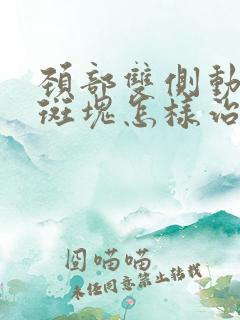 頸部雙側動
斑塊怎樣治
囧喵喵
未任同意禁止转载